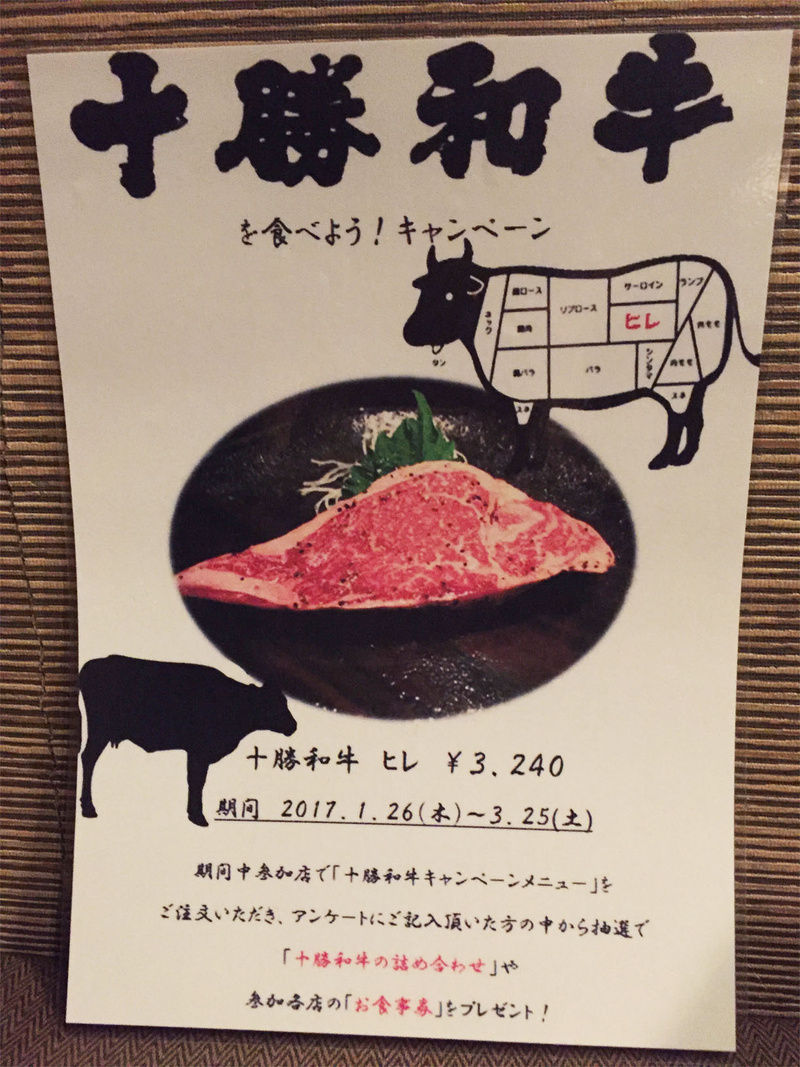 十勝和牛
を食べよう！キャンペーン
肩ロース
リブロース
サーロイン
ランプ
ネック
肩肉
ヒレ
外モモ
タン
肩バラ
バラ
シンタマ
内モモ
スネ
スネ
十勝和牛 ヒレ ￥3,240
期間 2017.1.26(木)～3.25(土)
期間中参加店で「十勝和牛キャンペーンメニュー」を
ご注文いただき、アンケートにご記入頂いた方の中から抽選で
「十勝和牛の詰め合わせ」や
参加各店の「お食事券」をプレゼント！